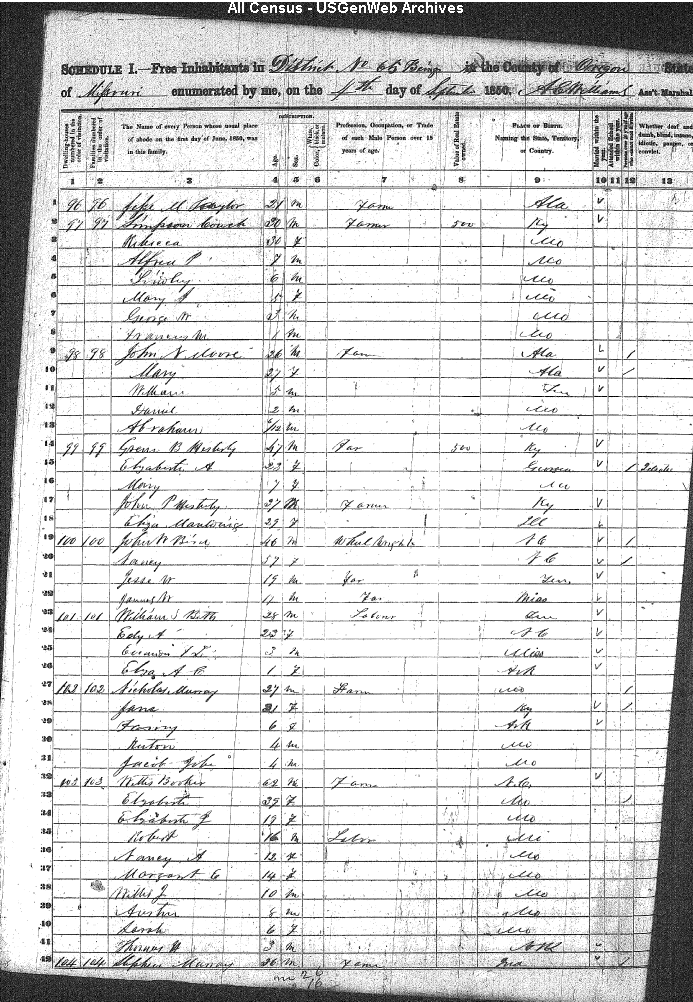 All Census - USGenWeb Archives
SCHEDULE I.—Free Inhabitants in District No 65 Being in the County of Oregon State
of Missouri enumerated by me, on the day of 1850. A C Williams Ass't Marshal
DESCRIPTION.
Dwelling-houses numbered in the order of visitation.
Families numbered in the order of visitation.
The Name of every Person whose usual place of abode on the first day of June, 1850, was in this family.
Age.
Sex.
White, Color, black, or mulatto.
Profession, Occupation, or Trade of each Male Person over 15 years of age.
Value of Real Estate owned.
PLACE OF BIRTH. Naming the State, Territory, or Country.
Married within the year.
Attended School within the year.
Whether deaf and dumb, blind, insane, idiotic, pauper, or convict.
1 2 3 4 5 6 7 8 9 10 11 12 13
1 96 96 M Taylor 21 m Farmer Ala
2 97 97 Simpson Couch 30 m Farmer 500 Ky
3 Rebecca 30 f Mo
4 Alfred P 7 m Mo
5 6 m Mo
6 Mary 5 f Mo
7 George W 3 m Mo
8 Francis M 1 m Mo
9 98 98 John N Moore 26 m Farm Ala 1
10 Mary 27 f Ala 1
11 William 5 m Ten
12 Daniel 2 m Mo
13 Abraham /12 m Mo
14 99 99 Green B 47 m Far 500 Ky
15 Elizabeth A 23 f Georgia 1
16 Mary 7 f Mo
17 John P 27 m Farmer Ky
18 Eliza 29 f Ill
19 100 100 John W Bird 46 m Wheel Wright N C 1
20 Nancy 57 f N C 1
21 Jesse W 19 m Far Ten
22 James W 17 m Far Miss
23 101 101 William S Betts 28 m Labour Ten
24 Edy A 23 f N C
25 3 m Miss
26 Eliza A C 1 f Ark
27 102 102 Nicholas Murray 27 m Farm Mo 1
28 Jane 21 f Ky 1
29 6 f Ark
30 Newton 4 m Mo
31 Jacob John 4 m Mo
32 103 103 Willis Booker 62 m Farmer N.C.
33 Elizabeth 39 f Mo 1
34 Elizabeth J 19 f Mo
35 Robert 16 m Labor Mi
36 Nancy A 12 f Mo
37 Margaret E 14 f Mo
38 Willis J 10 m Mo
39 Austin 8 m Mo
40 Sarah 6 f Mo
41 Thomas H 3 m Ark
42 104 104 Stephen Murray 26 m Farmer Ind 1